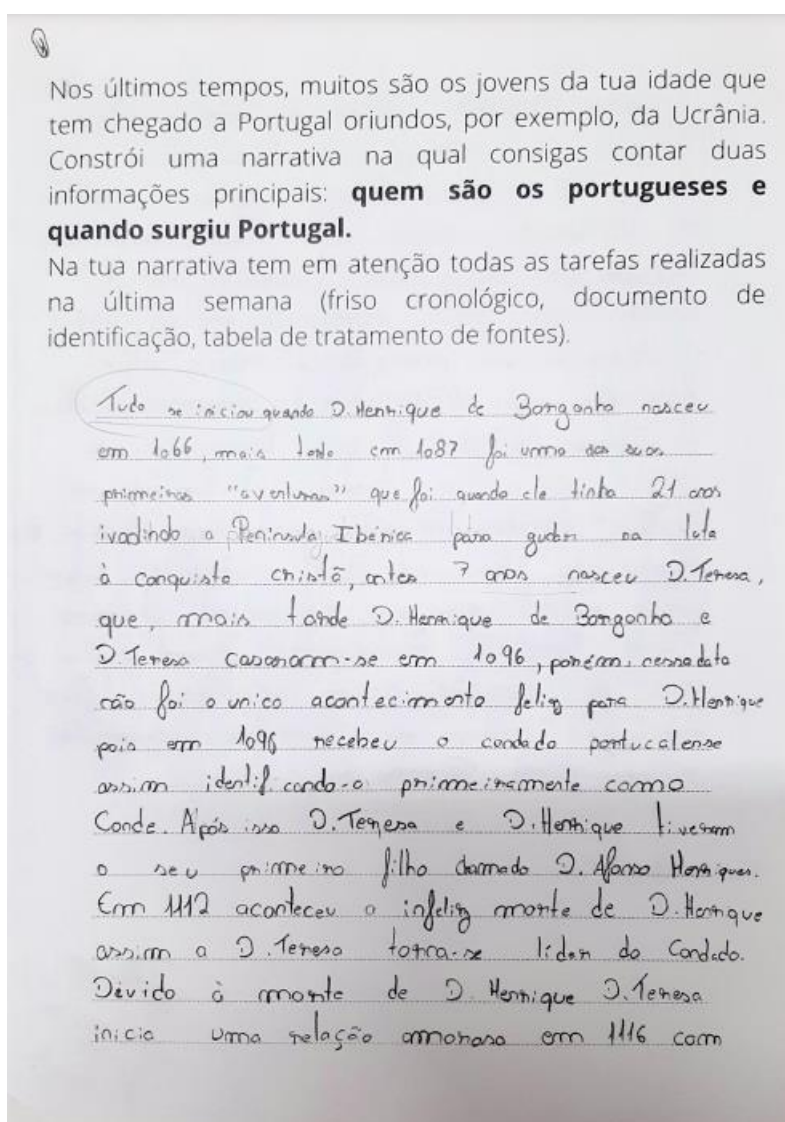 Nos últimos tempos, muitos são os jovens da tua idade que
tem chegado a Portugal oriundos, por exemplo, da Ucrânia.
Constrói uma narrativa na qual consigas contar duas
informações principais: quem são os portugueses e
quando surgiu Portugal.
Na tua narrativa tem em atenção todas as tarefas realizadas
na última semana (friso cronológico, documento de
identificação, tabela de tratamento de fontes).
Tudo se iniciou quando D. Henrique de Borgonha nasceu
em 1066, mais tarde em 1087 foi umma das suas
primeiras "aventuras" que foi quando ele tinha 21 anos
ivadindo a Península Ibérica para gudar na luta
à conquista cristã, antes 7 anos nasceu D. Teresa,
que, mais tarde D. Henrique de Borgonha e
D. Teresa casaram-se em 1096, porém, nessa data
não foi o unico acontecimento feliz para D. Henrique
pois em 1096 recebeu o condado portucalense
assim identificando-o primeiramente como
Conde. Após isso D. Teresa e D. Henrique tiveram
o seu primeiro filho chamado D. Afonso Henriques.
Em 1112 aconteceu a infeliz morte de D. Henrique
assim a D. Teresa torna-se lider do Condado.
Divido à morte de D. Henrique D. Teresa
inicia uma relação amorosa em 1116 com